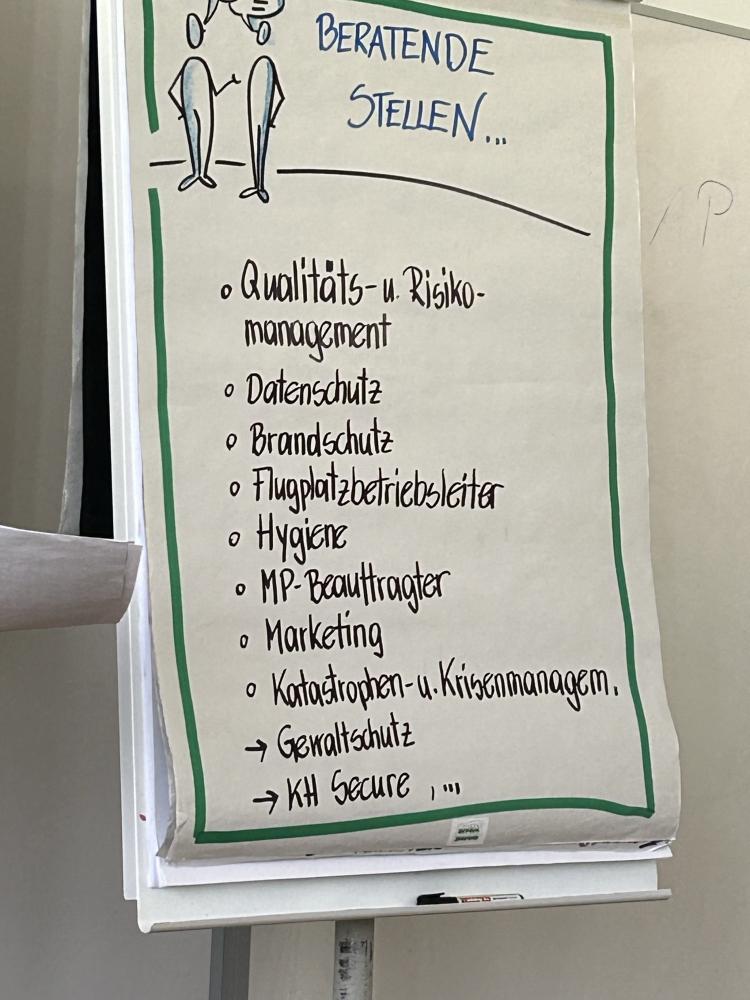 BERATENDE
STELLEN...
Qualitäts- u. Risiko-
management
Datenschutz
Brandschutz
Flugplatzbetriebsleiter
Hygiene
MP-Beauftragter
Marketing
Katastrophen- u. Krisenmanagem.
→ Gewaltschutz
→ KH Secure , ...